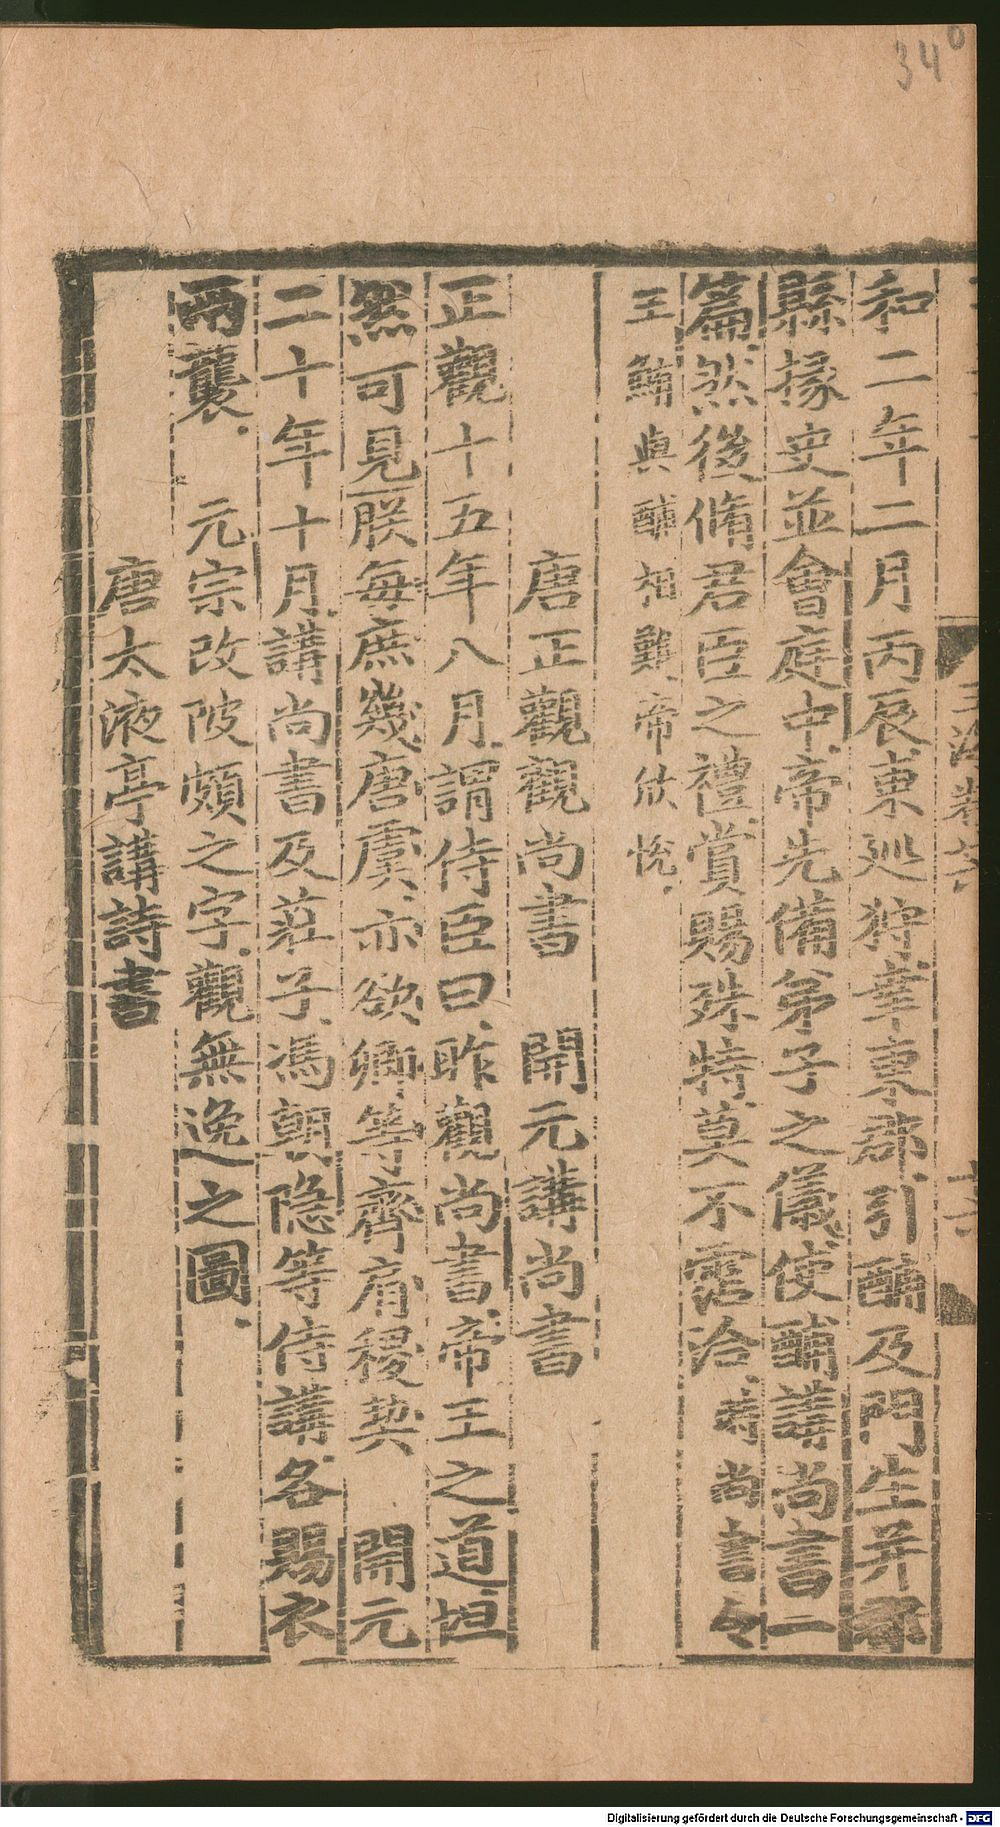 340
和二年二月丙辰東廵狩幸東郡引酺及門生并郡
縣掾史並會庭中帝先備弟子之儀使酺講尚書二
篇然後脩君臣之禮賞賜殊特莫不霑洽時尚書令
王鮪與酺相難帝欣悅
唐正觀觀尚書 開元講尚書
正觀十五年八月謂侍臣曰昨觀尚書帝王之道坦
然可見朕每庶幾唐虞亦欲卿等齊肩稷契 開元
二十年十月講尚書及莊子馮朝隐等侍講各賜衣
兩襲 元宗改陂頗之字觀無逸之圖
唐太液亭講詩書
Digitalisierung gefördert durch die Deutsche Forschungsgemeinschaft - DFG